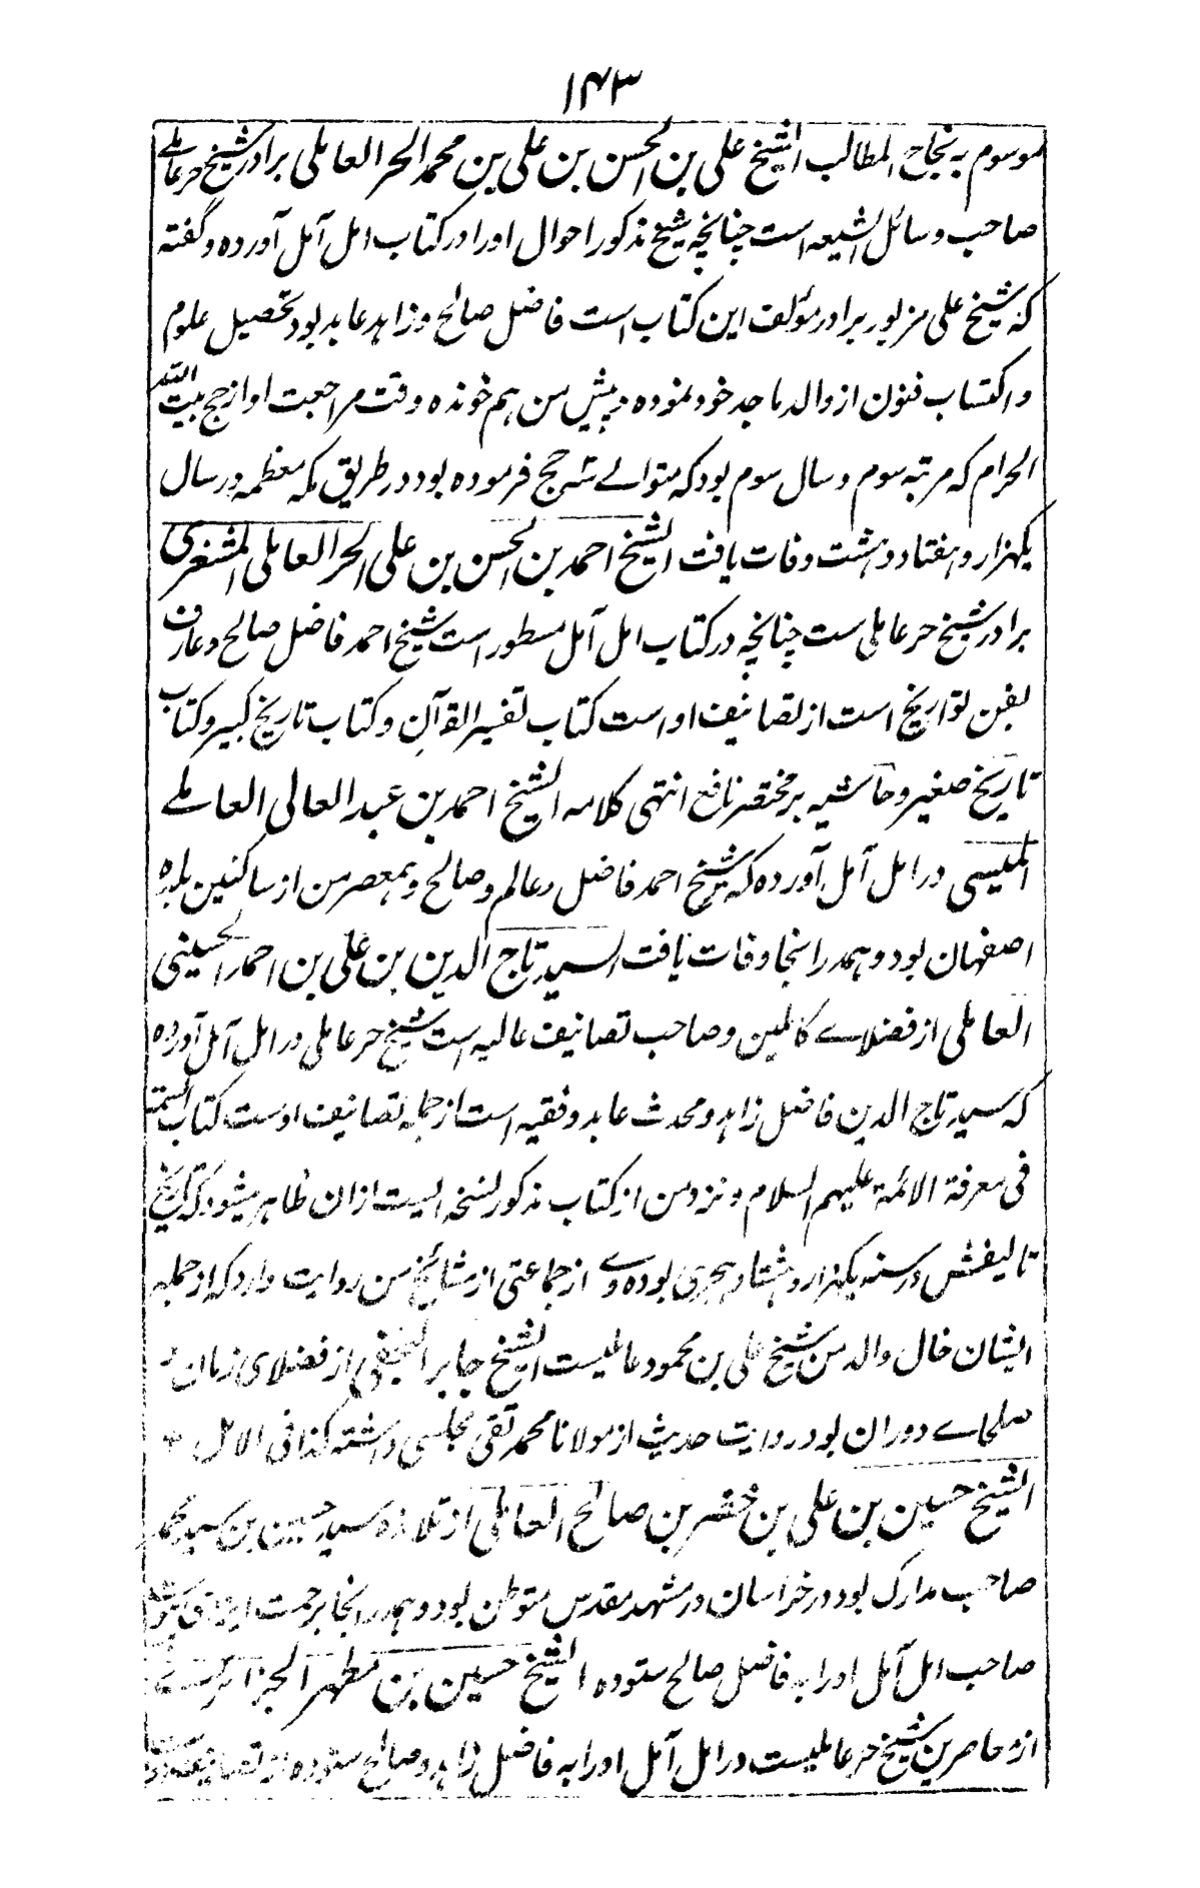 ۱۴۳
موسوم به نجاح المطالب الشیخ علی بن الحسن بن علی بن محمد الحر العاملی برادر شیخ حر عاملے
صاحب وسائل الشیعه است چنانچه شیخ مذکور احوال او را در کتاب امل آمل آورده و گفته
که شیخ علی مزبور برادر مؤلف این کتاب است فاضل صالح و زاهد عابد بود تحصیل علوم
و اکتساب فنون از والد ماجد خود نموده و پیش من هم خونده وقت مراجعت او از حج بیت الله
الحرام که مرتبه سوم و سال سوم بود که متوالے سه حج فرموده بود در طریق مکه معظمه در سال
یکهزار و هفتاد و هشت وفات یافت الشیخ احمد بن الحسن بن علی الحر العاملی المشغری
برادر شیخ حر عاملی ست چنانچه در کتاب امل آمل مسطور است شیخ احمد فاضل صالح و عارف
بفن تواریخ است از تصانیف او است کتاب تفسیر القرآن و کتاب تاریخ کبیر و کتاب
تاریخ صغیر و حاشیه بر مختصر نافع انتهی کلامه الشیخ احمد بن عبد العالی العاملے
المیسی در امل آمل آورده که شیخ احمد فاضل و عالم و صالح و همعصر من از ساکنین بلده
اصفهان بود و همدرانجا وفات یافت السید تاج الدین بن علی بن احمد الحسینی
العاملی از فضلاے کاملین و صاحب تصانیف عالیه است شیخ حر عاملی در امل آمل آورده
که سید تاج الدین فاضل زاهد و محدث عابد و فقیه است از جمله تصانیف اوست کتاب التتمة
فی معرفة الائمة علیهم السلام و نزد من از کتاب مذکور نسخه ایست ازان ظاهر میشود که تاریخ
تالیفش در سنه یکهزار و هشتاد هجری بوده وے از جماعتی از مشائخ من روایت دارد که از جمله
ایشان خال والد من شیخ علی بن محمود عاملیست الشیخ جابر النجفی از فضلای زمان و
صلحاے دوران بود روایت حدیث از مولانا محمد تقی مجلسی داشته کذا فی الامل
الشیخ حسین بن علی بن خضر بن صالح العاملی از تلامذه سید حسین بن سید محمد
صاحب مدارک بود در خراسان در مشهد مقدس متوطن بود و همدرانجا برحمت ایزدی
صاحب امل آمل او را به فاضل صالح ستوده الشیخ حسین بن مطهر الجزائری
از معاصرین شیخ حر عاملیست در امل آمل او را به فاضل زاهد و صالح ستوده از تصانیف